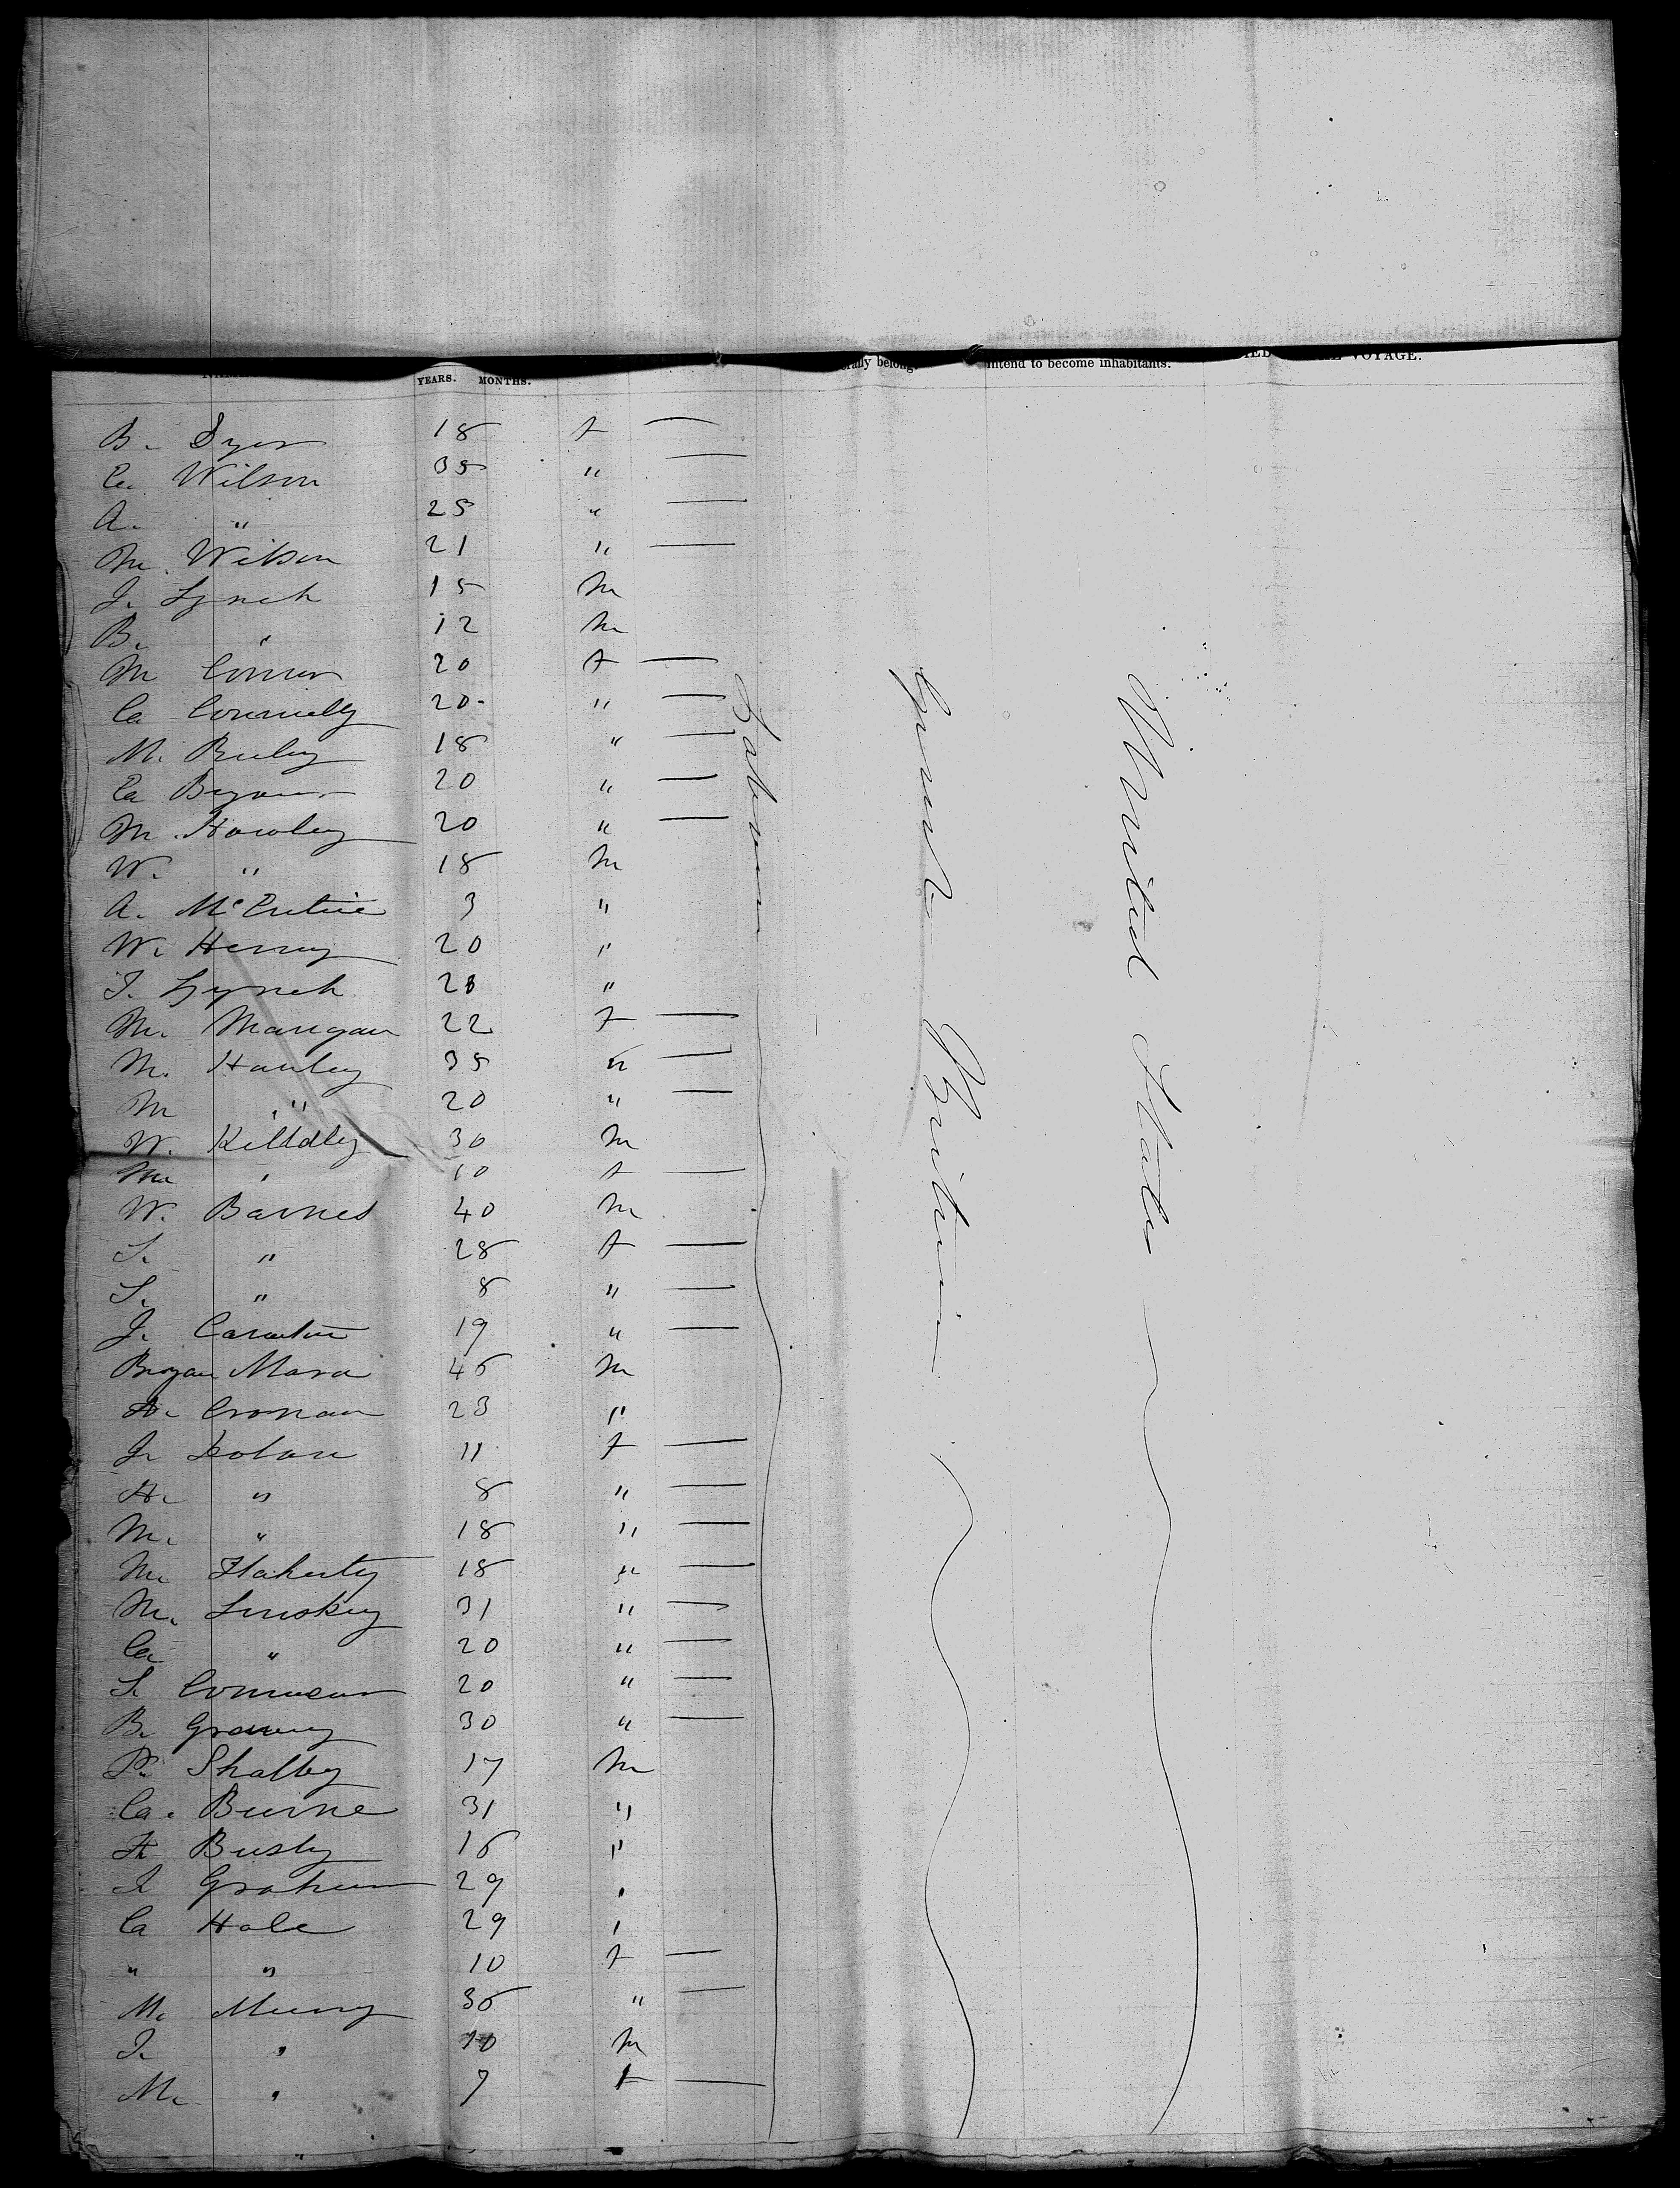 YEARS. MONTHS. erally belong. intend to become inhabitants. IED VOYAGE.
B. Dyer 18 f —
Ca Wilson 35 " —
A. " 25 " —
M. Wilson 21 " —
J. Lynch 15 M
B. " 12 M
M Connor 20 f —
Ca Connelly 20 " —
M. 18 " —
Ca 20 " —
M. Howley 20 " —
W. " 18 M
A. McEntire 3 "
W. Henry 20 "
J. Lynch 28 "
M. Mangan 22 f —
M. Hanley 35 " —
M " 20 " —
W. 30 M
M " 10 f —
W. Barnes 40 M
S. " 28 f —
S. " 8 " —
J. 19 " —
Bryan Mara 46 M
Cronan 23 "
J. Dolan 11 f —
A. " 8 " —
M. " 18 " —
M. Flaherty 18 " —
M. Linskey 31 " —
Ca " 20 " —
S. 20 " —
B. 30 " —
P. 17 M
Ca. Burne 31 "
Busby 16 "
J Graham 29 "
Ca Hale 29 "
" " 10 f —
M. Murry 36 " —
J. " 10 M
M. " 7 f —
Great Britain
United States